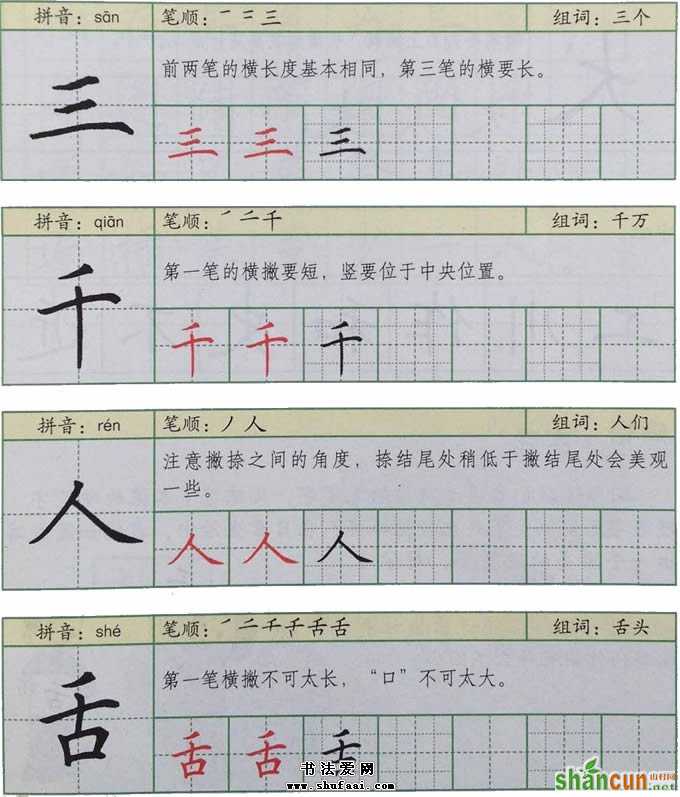 拼音：sān 笔顺：㇀ 二 三 组词：三个
前两笔的横长度基本相同，第三笔的横要长。
三
三 三 三
拼音：qiān 笔顺：㇒ 二 千 组词：千万
第一笔的横撇要短，竖要位于中央位置。
千
千 千 千
拼音：rén 笔顺：丿 人 组词：人们
注意撇捺之间的角度，捺结尾处稍低于撇结尾处会美观
一些。
人
人 人 人
拼音：shé 笔顺：舌 组词：舌头
第一笔横撇不可太长，“口”不可太大。
舌
舌 舌 舌
书法爱网
www.shufaai.com
shancun 山村网
.net